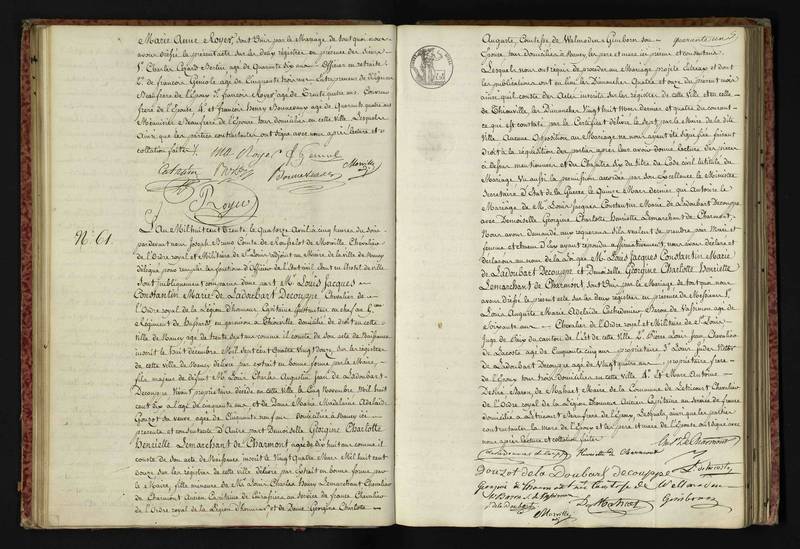 Marie Anne Royer, sont Unis par le Mariage de tout quoi nous
avons dressé le présent acte sur les deux registres en présence des Sieurs
1° Charles Gérard Bertin agé de Quarante dix ans Officier en retraite
2° de françois Géniole agé de Cinquante trois ans
Beaufrère de l'Epoux 3° françois Royer agé de Trente quatre ans
frère de l'Epouse 4° et françois Henry Bonneveaux agé de Quarante quatre ans
Menuisier Beaufrère de l'Epouse tous domiciliés en cette ville. Lesquels
Ainsi que les parties contractantes ont signé avec nous après lecture et
collation faites
Royer
Morville
Royer
N° 61.
L'An Mil huit cent Trente, le Quatorze Avril à cinq heures du soir
pardevant nous Joseph Bruno Comte de Rousselot de Morville Chevalier
de l'Ordre royal et Militaire de St Louis adjoint au Maire de la ville de Nancy
délégué pour remplir les fonctions d'Officier de l'Etat civil
sont publiquement comparus d'une part Mr Louis Jacques
Constantin Marie de Ladoubart Decouppe Chevalier de
l'Ordre royal de la Légion d'honneur Capitaine Instructeur en chef au
Régiment de Hussards en garnison à Thionville domicilié de droit en cette
ville de Nancy agé de trente sept ans comme il conste de son acte de Naissance
inscrit le huit décembre Mil sept cent Quatre Vingt Douze sur les registres
de cette ville de Nancy délivré par extrait en bonne forme par le Maire
fils majeur de défunt Mr Louis Charles Augustin Jean de Ladoubart
Decouppe Vivant propriétaire décédé en cette ville le Cinq Novembre Mil huit
cent dix à l'age de cinquante ans et de Dame Marie Madelaine Adelaïde
Gouzot sa veuve agée de Cinquante neuf ans domiciliée à Nancy ici
présente et consentante d'Autre part Demoiselle Georgine Charlotte
Henriette Lemarchant de Charmont agée de dix huit ans comme il
conste de son acte de Naissance inscrit le Vingt Quatre Mars Mil huit cent
douze sur les registres de cette ville délivré par extrait en bonne forme par
le Maire, fille mineure de Mr Louis Charles Henry Lemarchant Chevalier
de Charmont Ancien Capitaine de Cavalerie au service de france Chevalier
de l'Ordre royal de la Légion d'honneur, et de Dame Georgine Charlotte
Quarante un
Auguste, Comtesse de Walmoden Gimborn son
Epouse tous domiciliés à Nancy, les pere et mere ici présens et consentans
Lesquels nous ont requis de procéder au Mariage projeté entr'eux et dont
les publications ont eu lieu les Dimanches Quatre et onze du présent mois
ainsi qu'il conste des Actes inscrits sur les registres de cette Ville et en celle
de Thionville, les Dimanches Vingt huit Mars dernier et quatre du courant
ce qui est constaté par le Certificat délivré le sept par le Maire de la dite
Ville Aucune Opposition au Mariage ne nous ayant été signifiée, faisant
droit à la réquisition des parties après leur avoir donné lecture des pieces
ci dessus mentionnées et du Chapitre Six du titre du Code civil intitulé du
Mariage. Vu aussi la permission accordée par son Excellence le Ministre
Secrétaire d'Etat de la Guerre le Quinze Mars dernier qui autorise le
Mariage de Mr Louis Jacques Constantin Marie de Ladoubart Decouppe
avec Demoiselle Georgine Charlotte Henriette Lemarchant de Charmont.
Nous avons demandé aux requérans s'ils veulent se prendre pour Mari et
femme et chacun d'eux ayant répondu affirmativement, nous avons déclaré et
déclarons au nom de la Loi que Mr Louis Jacques Constantin Marie
de Ladoubart Decouppe et Demoiselle Georgine Charlotte Henriette
Lemarchant de Charmont sont Unis par le Mariage de tout quoi nous
avons dressé le présent acte sur les deux registres en présence de Messieurs 1°
Louis Auguste Marie Adelaïde Baron de Vassimon agé de
Soixante ans Chevalier de l'Ordre royal et Militaire de St Louis
Juge de Paix du canton de l'Est de cette ville 2° Pierre Louis Jean Chevalier
de Lacoste agé de Cinquante cinq ans propriétaire 3° Louis Victor
de Ladoubart Decouppe agé de Vingt quatre ans propriétaire frere
de l'Epoux tous trois domiciliés en cette Ville 4° et Marc Antoine
Désiré Baron de Mahuet Maire de la Commune de Létricourt Chevalier
de l'Ordre royal de la Légion d'honneur Ancien Capitaine au service de france
domicilié à Létricourt. Lesquels, ainsi que les parties
contractantes la mere de l'Epoux et les pere et mere de l'Epouse ont signé avec
nous après lecture et collation faites
Henriette de Charmont
Gouzot de la Doubart decouppe
de Charmont née Comtesse de Wallmoden
Gimborn
De Mahuet
Morville